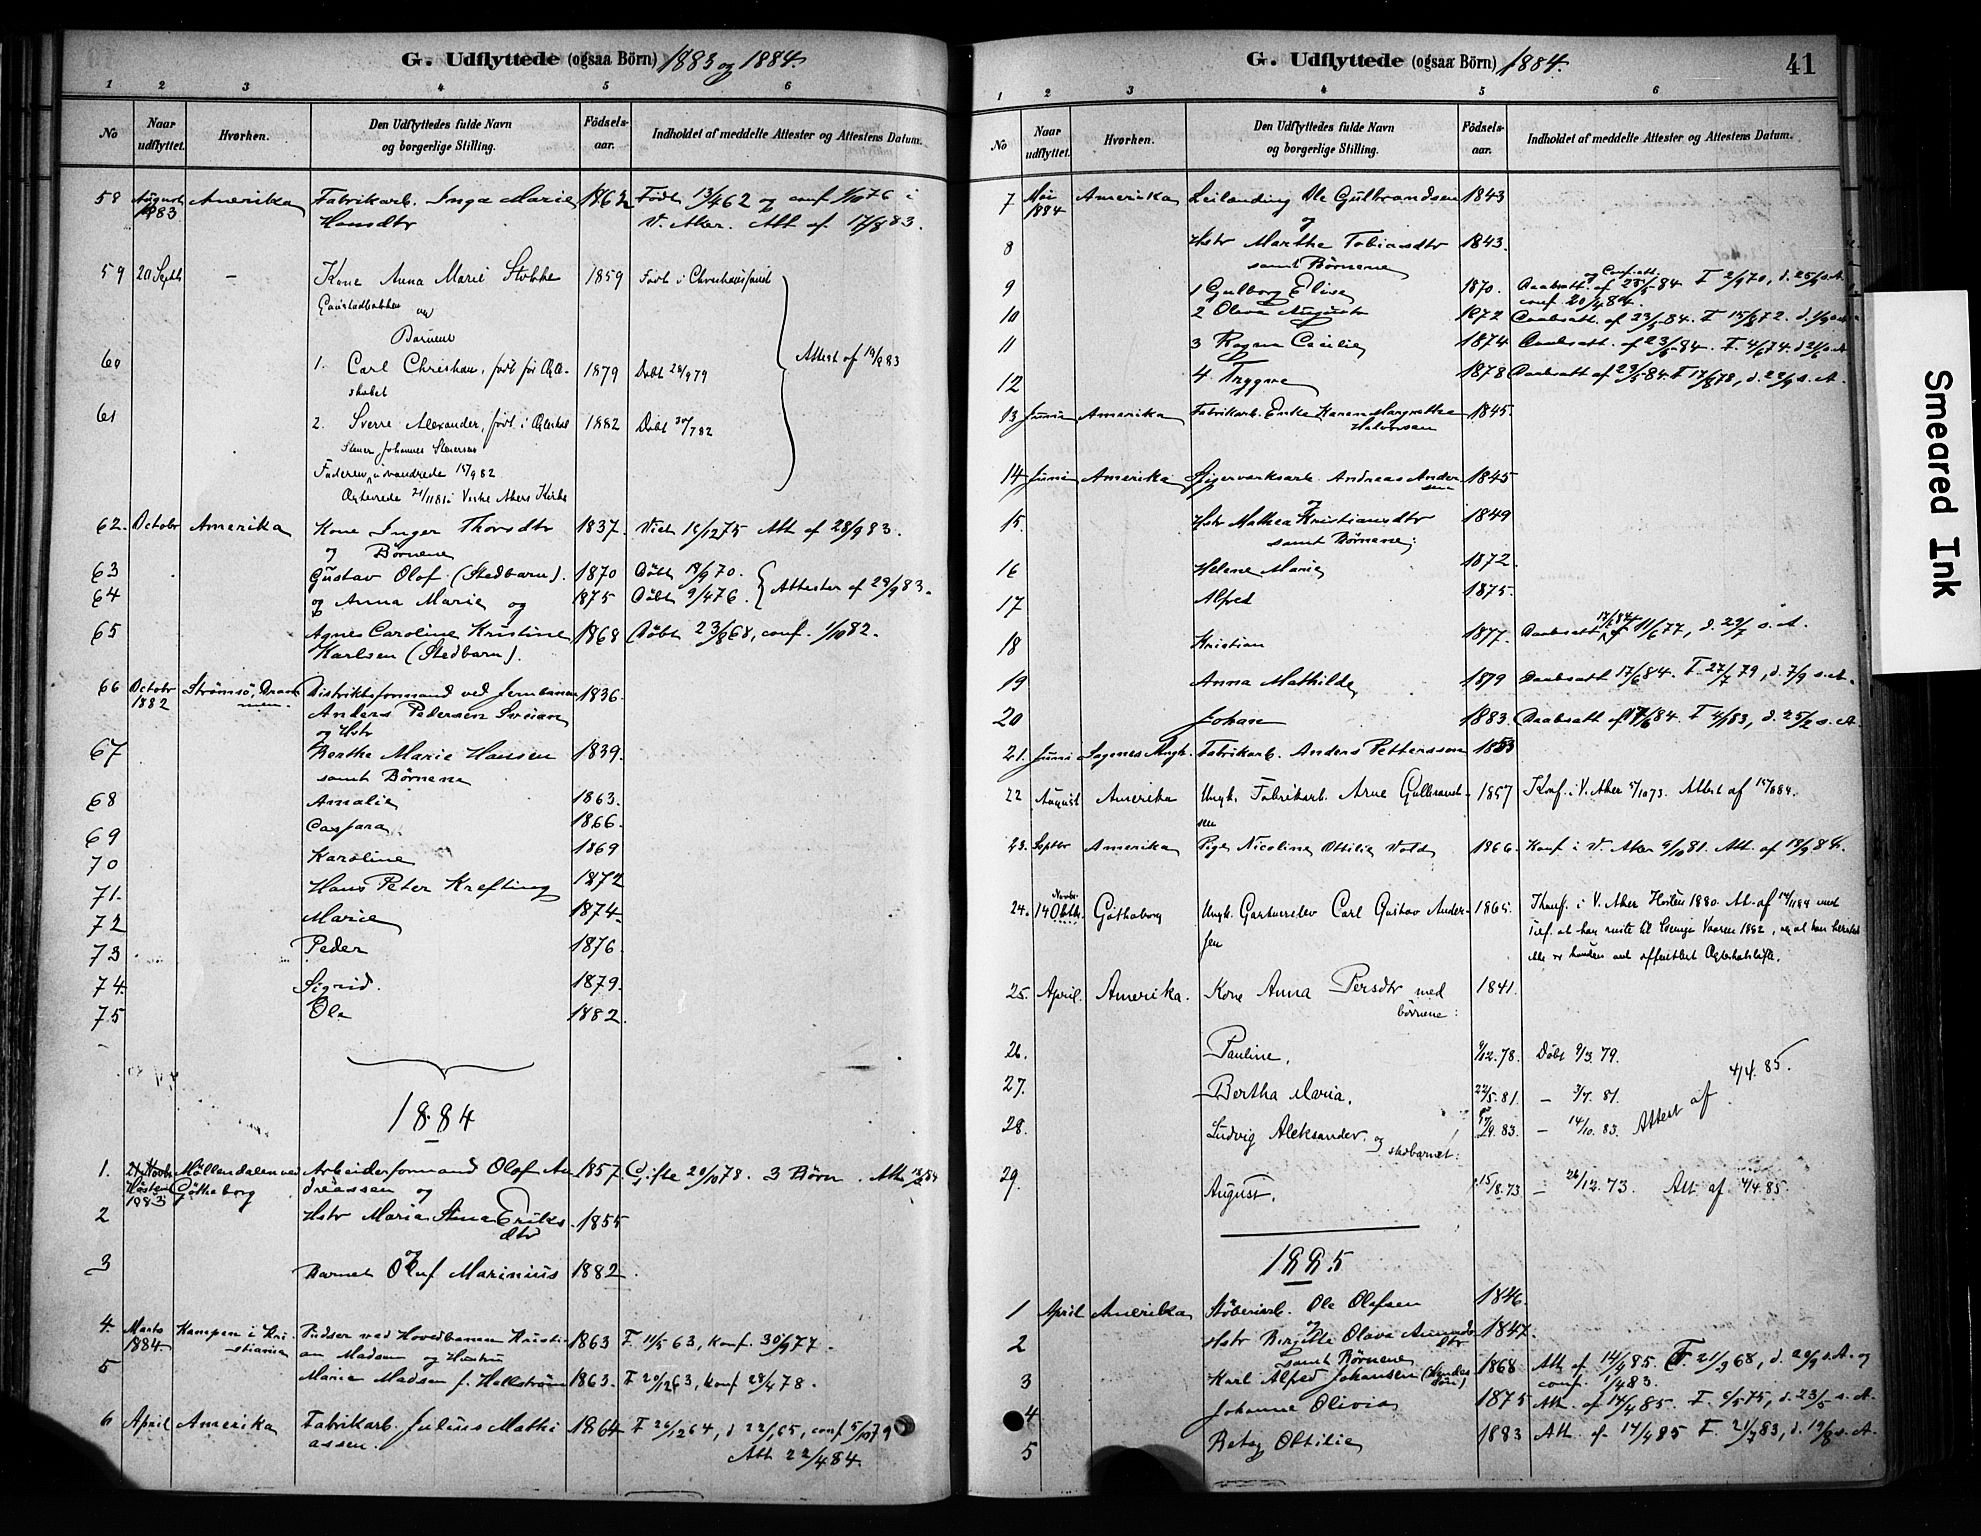 G. Udflyttede (ogsaa Börn) 1883 og 1884.
1 2 3 4 5 6
No Naar udflyttet. Hvorhen. Den Udflyttedes fulde Navn og borgerlige Stilling. Födsels-aar. Indholdet af meddelte Attester og Attestens Datum.
58 August 1883 Amerika Fabrikarb. Inga Marie 1862 Födt 13/4 62 og conf 1/10 76 i
Hansdtr V. Aker. Att af 17/8 83.
59 20 Septb – Kone Anna Marie Stokke 1859 Födt i Christiansand
Gaustadbakken
og
Börnene
60 1. Carl Christian, födt för Ægte- 1879 Döbt 28/9 79 Attest af 19/9 83
skabet
61 2. Sverre Alexander, födt i Ægteskab 1882 Döbt 30/7 82
Faderen udvandrede 15/9 82
Ægteviede 21/11 81 i Vestre Akers Kirke
62. Octobr Amerika Kone Inger Thorsdtr 1837. Viet 16/12 75 Att af 28/9 83.
og Börnene
63 Gustav Olof (Stedbarn). 1870 Döbt 18/9 70. Attester af 29/9 83.
64 og Anna Marie og 1875 Döbt 9/4 76.
65 Agnes Caroline Kristine 1868 Döbt 23/8 68, conf. 1/10 82.
Karlsen (Stedbarn).
66 Octobr 1882 Strömsö, Drammen. Distriktsformand ved Jernbanen 1836.
Anders Pedersen Sveian
og Hstr
67 Berthe Marie Hansen 1839.
samt Börnene
68 Amalie 1863.
69 Caspara 1866.
70 Karoline 1869
71. Hans Peter Krefting 1872
72 Marie 1874
73 Peder 1876.
74. Sigrid. 1879.
75 Ole 1882.
1884
1. Höstene 1883 Möllendalen ved Göthaborg Arbeiderformand Olof An- 1857. Gifte 20/10 78. 3 Börn. Att
dreassen og
2 Hstr Maria Stina Eriks 1855
dtr
og
3 Barnet Oluf Marinius 1882.
4. Marts 1884 Kampen i Kristiania Pudser ved Hovedbanen Kristi- 1863 F. 11/5 63, Konf. 30/9 77.
an Madsen og Hustru
5 Maria Madsen f. Hallström 1863. F. 20/12 63, Konf 28/4 78.
6 April Amerika Fabrikarb. Julius Mathi- 1864 F 26/12 64, d 22/1 65, conf 5/10 79
assen. Att 22/4 84.
G. Udflyttede (ogsaa Börn) 1884.
41
1 2 3 4 5 6
No Naar udflyttet. Hvorhen. Den Udflyttedes fulde Navn og borgerlige Stilling. Födsels-aar. Indholdet af meddelte Attester og Attestens Datum.
7 Mai 1884 Amerika Leilænding Ole Gulbrandsen 1843
og
8 Hstr Marthe Tobiasdtr 1843.
samt Börnene
9 1 Gulborg Elise 1870. Daabsatt. og Conf.att. af 23/5 84 F 2/9 70, d. 25/9 s.A.
conf. 20/4 84.
10 2 Olava Augusta 1872 Daabsatt. af 23/5 84. F 15/8 72. d.
11 3 Ragna Cecilie 1874 Daabsatt. af 23/5 84. F. 4/6 74. d 21/6 s.A
12 4. Tryggve 1878 Daabsatt af 23/5 84. F 17/8 78, d. 22/9 s.A.
13 Juni Amerika Fabrikarb. Enke Karen Margrethe 1845.
Halvorsen
14 Juni Amerika Spigerverksarb. Andreas Ander- 1845
sen
og
15. Hstr Mathea Kristiansdtr 1849
samt Börnene:
16 Helene Marie 1872.
17 Alfred 1875.
18 Kristian 1877. Daabsatt 17/6 84 F 11/6 77, d. 29/7 s.A.
19 Anna Mathilde 1879 Daabsatt 17/6 84. F. 27/7 79, d. 7/9 s.A.
20 Johan 1883. Daabsatt af 17/6 84. F 4/1 83, d. 25/2 s.A.
21. Juni Sagenes Mngh. Fabrikarb. Anders Petterssen 1853
22 August Amerika Ungk. Fabrikarb. Arne Gulbrand- 1857 Konf. i V. Aker 5/10 73. Attest af 15/8 84.
sen
23. Septbr Amerika Pige Nicoline Ottilie Vold 1866. Konf i V. Aker 9/10 81. Att. af 18/9 84.
24. 14 Novbr. Götheborg Ungk. Gartnerelev Carl Gustav Ander- 1865. Konf. i V. Aker Hösten 1880. At. af 14/11 84 med
sen Tilf. at han reiste til Vaaren 1882, og at han
offentligt Ægteskabslöfte.
25. April. Amerika. Kone Anna Persdtr med 1841.
börnene:
26. Pauline. 9/12.78. Döbt 9/3 79.
27. Bertha Maria. 22/5.81. – 3/7. 81. Attest af 4/4.85.
28. Ludvig Aleksander. og 17/9.83. – 14/10. 83.
stedbarnet:
29. August. 15/8.73 – 26/12.73. Att af 4/4.85.
1885
1 April Amerika Stöberiarb. Ole Olafsen 1846
og
2 Hstr Birgitte Olava Amunds- 1847.
dtr
samt Börnene
3 Karl Alfred Johansen (Hendes Sön) 1868 Att af 14/4 85. F. 21/9 68, d. 20/9 s.A. og
conf. 1/4 83.
4 Johanne Olivia 1875 Att. af 14/4 85. F. 5/1 75, d. 23/5 s.A.
5 Betzy Ottilie 1883 Att. af 14/4 85 F. 21/7 83, d. 19/8 s.A.
Smeared Ink